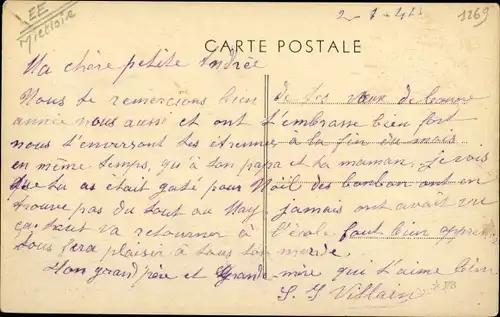 EE
2-1-41
1269
CARTE POSTALE
Ma chère petite Andrée
Nous te remercions bien de tes vœux de bonne
année nous aussi et ont t'embrasse bien fort
nous t'enverront tes étrennes à la fin du mois
en même temps, qu'à ton papa et ta maman, je vois
que tu as était gaté pour Noil des bonbon ont en
trouve pas du tout au jamais ont avait vu
ça faut va retourner à l'école faut bien
sous fera plaisir à tous ton monde
Mon grand père et Grande mère qui t'aime bien
Villain